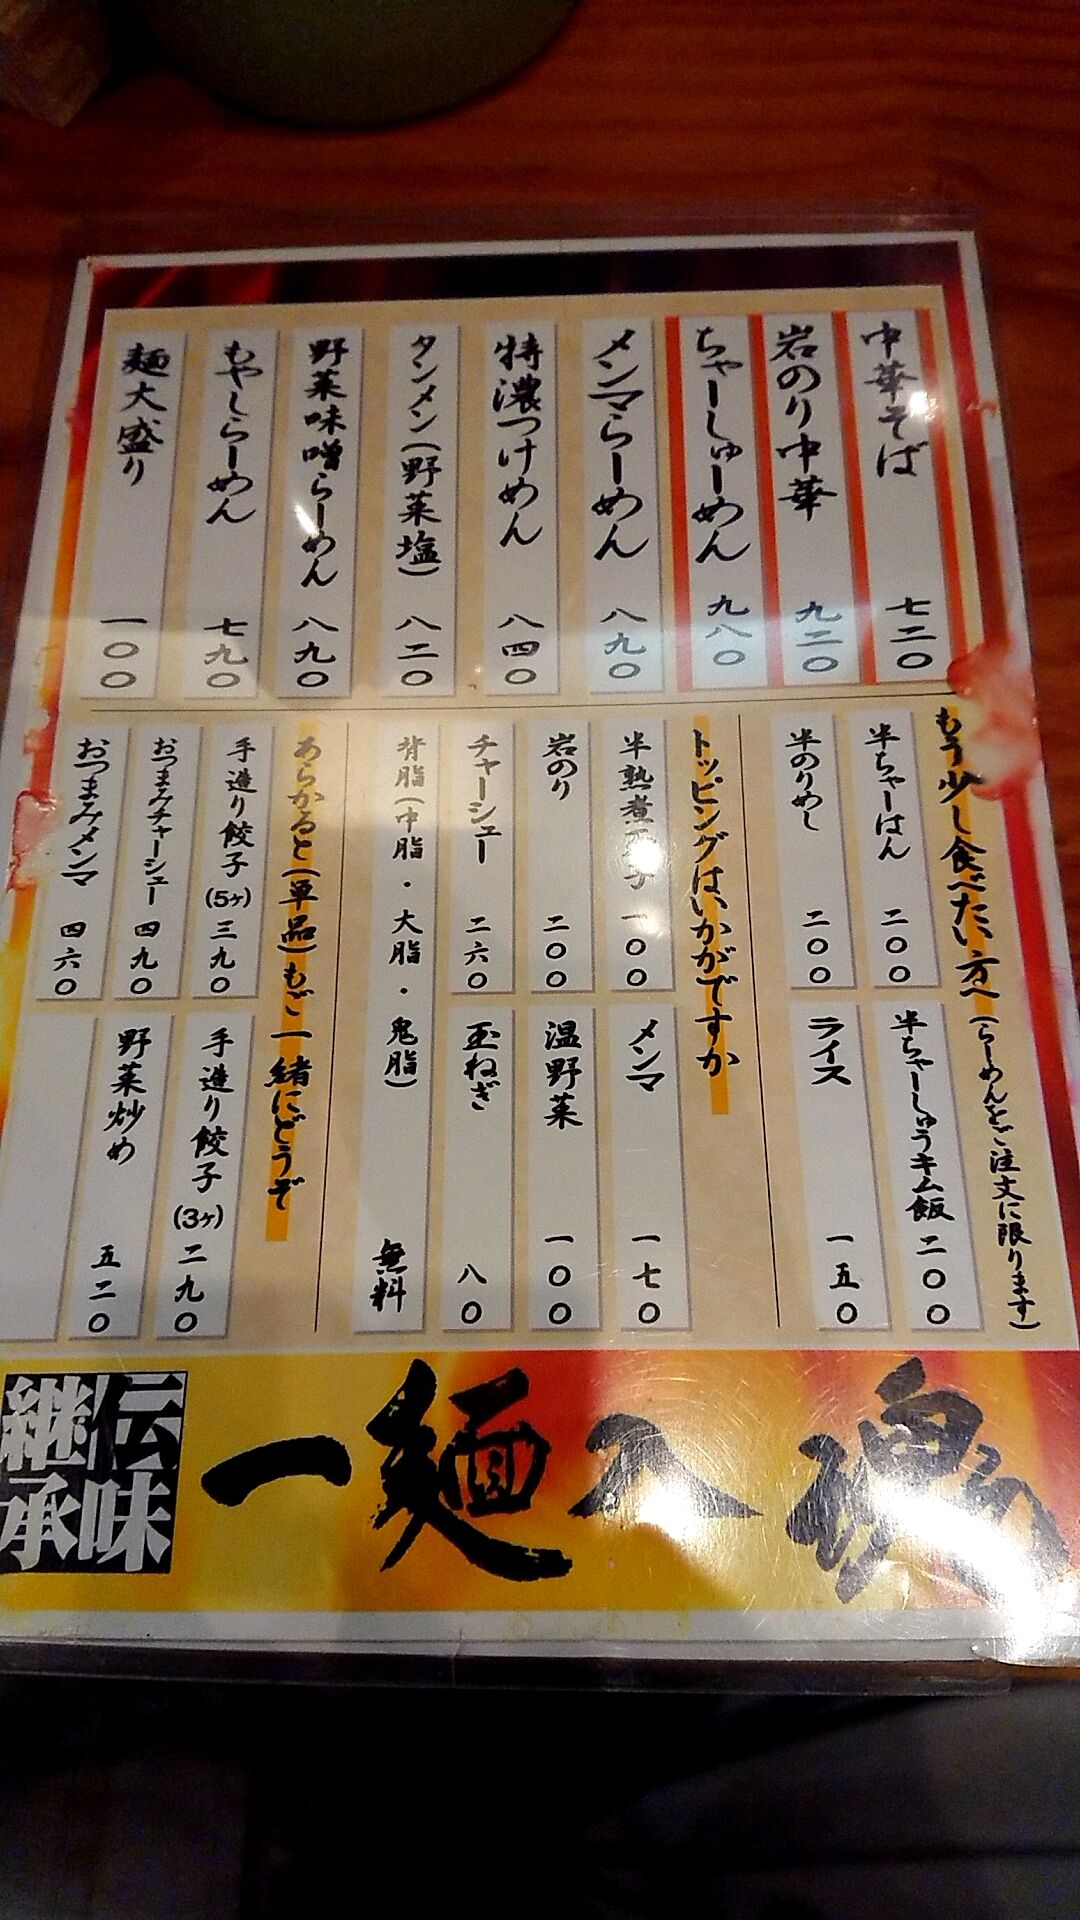 中華そば 七二〇
岩のり中華 九二〇
ちゃーしゅーめん 九八〇
メンマらーめん 八九〇
特濃つけめん 八四〇
タンメン(野菜塩) 八二〇
野菜味噌らーめん 八九〇
もやしらーめん 七九〇
麺大盛り 一〇〇
もう少し食べたい方へ(らーめんをご注文に限ります)
半ちゃーはん 二〇〇
半ちゃーしゅうキム飯 二〇〇
半のりめし 二〇〇
ライス 一五〇
トッピングはいかがですか
半熟煮玉子 一〇〇
メンマ 一七〇
岩のり 二〇〇
温野菜 一〇〇
チャーシュー 二六〇
玉ねぎ 八〇
背脂(中脂・大脂・鬼脂) 無料
あらかると(単品)もご一緒にどうぞ
手造り餃子(5ヶ) 三九〇
手造り餃子(3ヶ) 二九〇
おつまみチャーシュー 四九〇
野菜炒め 五二〇
おつまみメンマ 四六〇
伝味継承
一麺入魂